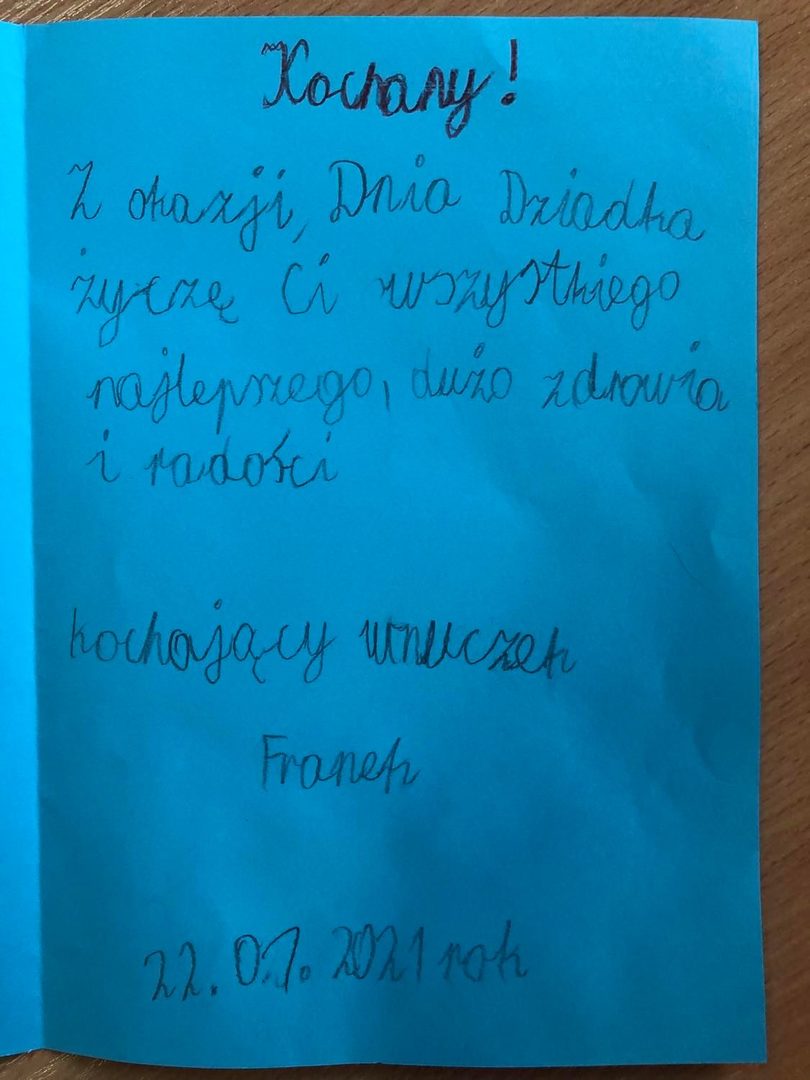 Kochany!
Z okazji, Dnia Dziadka
życzę Ci wszystkiego
najlepszego, dużo zdrowia
i radości
kochający wnuczek
Franek
22.01.2021 rok